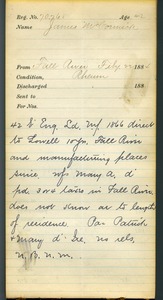 Reg. No. Age 42
Name James McCormick
From Fall River Feby 188
Condition,
Discharged 188
Sent to
For Nos.
42 E Eng. Ld. Inf. 1866 direct
to Lowell 10 yrs, Fall River
and manufacturing places
since, wfs Mary A, d'
pd. 3 or 4 taxes in Fall River
does not show as to length
of residence. Pas Patrick
& Mary d' Ire, no rels,
N. B. N. M.